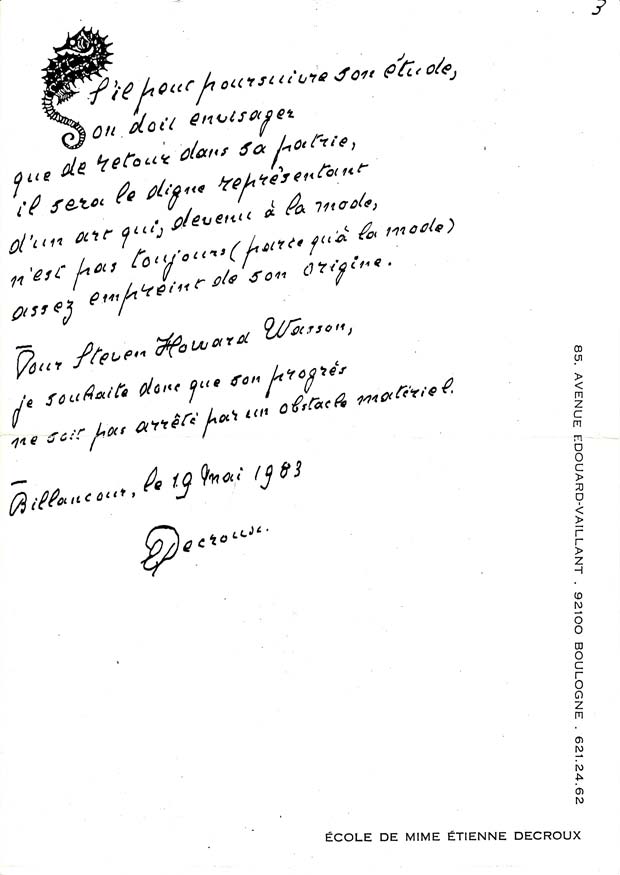 3
S'il peut poursuivre son étude,
on doit envisager
que de retour dans sa patrie,
il sera le digne représentant
d'un art qui, devenu à la mode,
n'est pas toujours (parce qu'à la mode)
assez empreint de son origine.
Pour Steven Howard Wasson,
je souhaite donc que son progrès
ne soit pas arrêté par un obstacle matériel.
Billancour, le 19 Mai 1983
EDecroux.
85. AVENUE EDOUARD-VAILLANT . 92100 BOULOGNE . 621.24.62
ÉCOLE DE MIME ÉTIENNE DECROUX